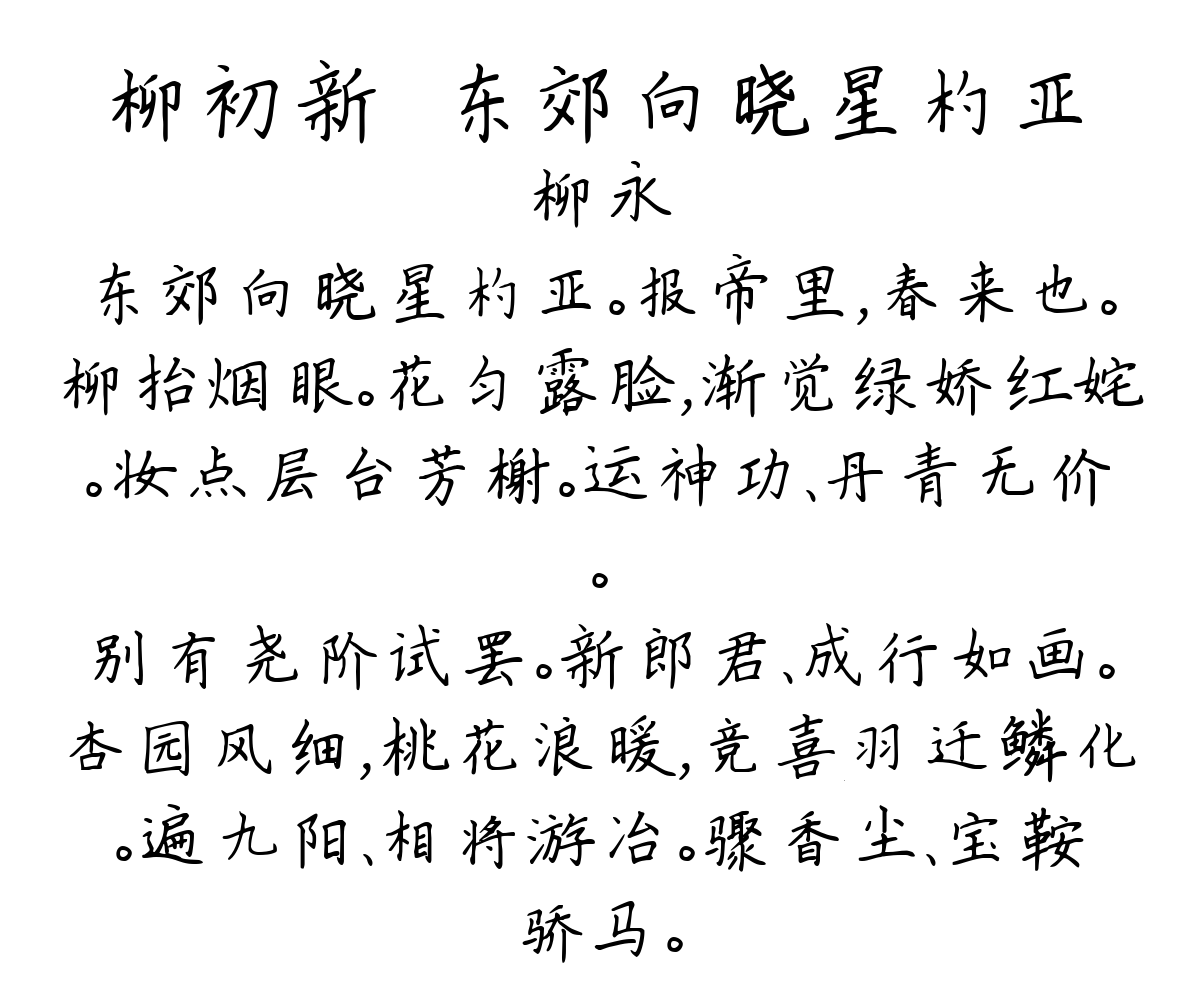 柳初新 东郊向晓星杓亚
柳永
东郊向晓星杓亚。报帝里,春来也。
柳抬烟眼。花匀露脸,渐觉绿娇红姹
。妆点层台芳榭。运神功、丹青无价
。
别有尧阶试罢。新郎君、成行如画。
杏园风细,桃花浪暖,竞喜羽迁鳞化
。遍九阳、相将游冶。骤香尘、宝鞍
骄马。